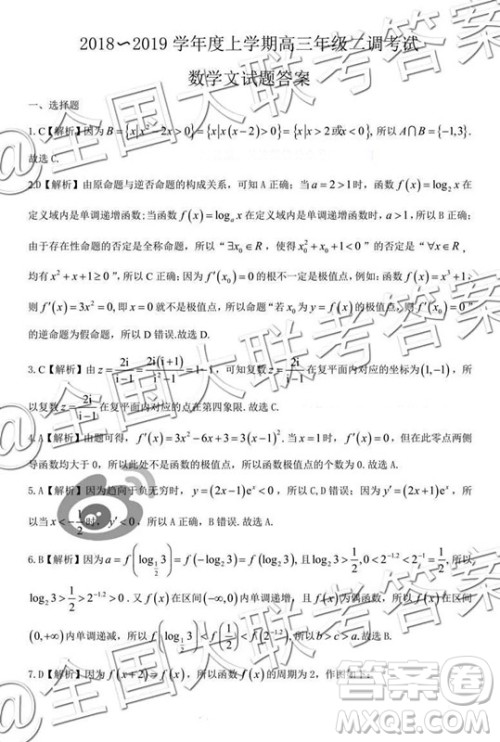 2018~2019 学年度上学期高三年级二调考试
数学文试题答案
一、选择题
1.C【解析】因为 B={x|x²-2x>0}={x|x(x-2)>0}={x|x>2或x<0}, 所以 A∩B={-1,3}.
故选 C.
2.D【解析】由原命题与逆否命题的构成关系，可知 A 正确；当 a=2>1时，函数 f(x)=log₂x在
定义域内是单调递增函数;当函数 f(x)=logₐx定义域内是单调递增函数时，a>1, 所以 B 正确；由
于存在性命题的否定是全称命题，所以“∃x₀∈R，使得 x₀²+x₀+1<0”的否定是“∀x∈R，
均有 x²+x+1≥0”, 所以 C 正确；因为 f'(x₀)=0的根不一定是极值点，例如：函数 f(x)=x³+1,
则 f'(x)=3x²=0, 即 x=0就不是极值点，所以命题“若 x₀为 y=f(x)的极值点，则 f'(x₀)=0”
的逆命题为假命题，所以 D 错误.故选 D.
3.C【解析】因为 z=2i/(i-1)=2i(i+1)/(i²-1)=1-i, 可知复数 z=2i/(i-1)在复平面内对应的坐标为(1,-1), 所
以复数 z=2i/(i-1)在复平面内对应的点在第四象限.故选 C.
4.A【解析】由题可得，f'(x)=3x²-6x+3=3(x-1)². 当 f'(x)=0时，x=1, 但在此零点两侧
导函数均大于 0, 所以此处不是函数的极值点，所以函数极值点个数为 0.故选 A.
5.A【解析】因为趋向于负无穷时，y=(2x-1)eˣ<0, 所以 C,D 错误；因为 y'=(2x+1)eˣ,
所以当 x<-1/2时，y'<0, 所以 B 错误.故选 A.
6.B【解析】因为 a=f(log_{1/2}3)=f(-log₂3)=f(log₂3), 且 log₂3>1/2, 0<2^{-1.2}<2^{-1}=1/2, 所以
log₂3>1/2>2^{-1.2}>0. 又 f(x)在区间(-∞,0)内单调递增，且 f(x)为偶函数，所以 f(x)在区间
(0,+∞)内单调递减，所以 f(log_{1/2}3)<f(1/2)<f(2^{-1.2}), 所以 b>c>a.故选 B.
7.D【解析】因为 f(x+2)=f(x), 所以函数 f(x)的周期为 2, 作图如下
@全国大联考答案
@全国大联考答案
@全国大联考答案
答案圈
MXQE.COM